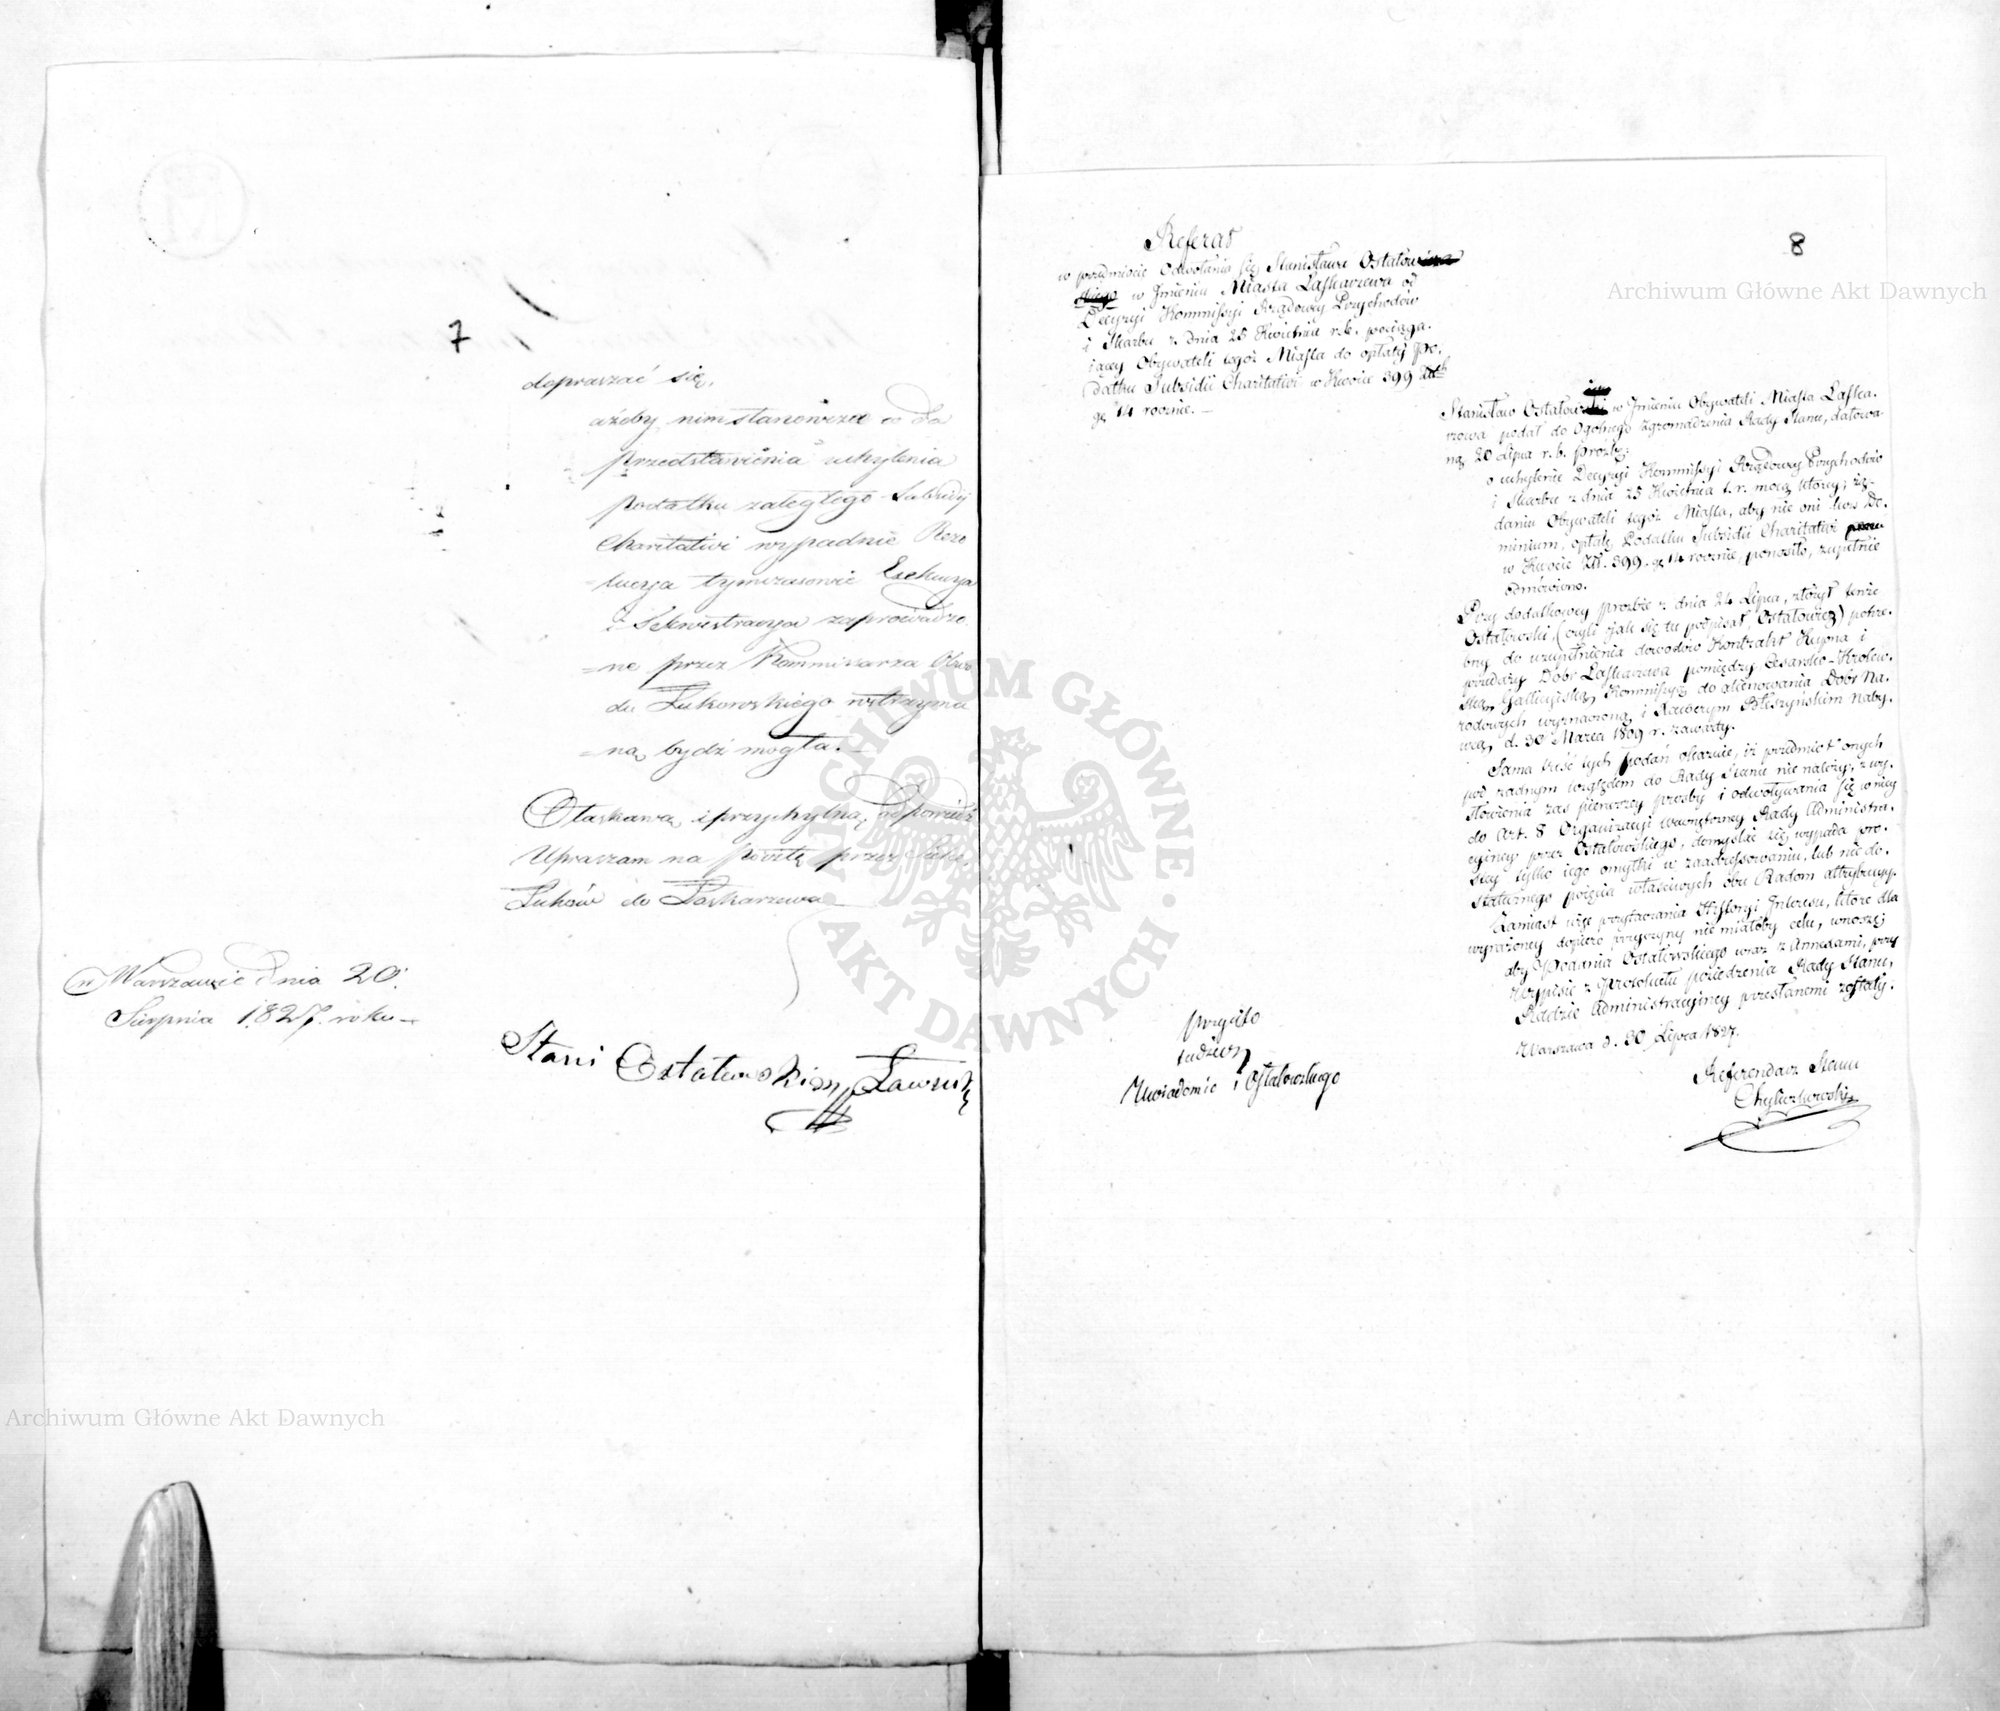 7
dopraszać się,
ażeby nim stanowcza co do
przedstawienia uchylenia
podatku zaległego Subsidij
Charitativi wypadnie Rezo
lucyja tymczasowie Exekucya
i Sekwestracyja zaprowadzo
=ne przez Kommissarza Obwo
du Łukowskiego wstrzyma
=ną bydź mogła.—
O łaskawą i przychylną odpowiedź
Upraszam na pocztę przez
Łuków do Łaskarzewa—
w Warszawie dnia 20.
Sierpnia 1827. roku—
Stani Ostałowskim Ławnik
8
Referat
w przedmiocie Odwołania się Stanisława Ostałow
skiego w Imieniu Miasta Łaskarzewa od
Decyzyi Kommissyi Rządowey Przychodów
i Skarbu z dnia 25 Kwietnia r.b. pociąga-
iącey Obywateli tegoż Miasta do opłaty Po-
datku Subsidii Charitativi w Kwocie 399
gr 14 rocznie.—
Stanisław Ostałow w Imieniu Obywateli Miasta Łaska-
rzewa podał do Ogólnego Zgromadzenia Rady Stanu, datowa-
ną 20 Lipca r.b. prośbę:
o uchylenie Decyzyi Kommissyi Rządowey Przychodów
i Skarbu z dnia 25 Kwietnia t.r. mocą którey; żą-
daniu Obywateli tegoż Miasta, aby nie oni lecz Do-
minium, opłatę Podatku Subsidii Charitativi
w Kwocie Zł. 399. gr 14 rocznie, ponosiło, zupełnie
odmówiono.
Przy dodatkowey prośbie z dnia 24 Lipca, złożył tenże
Ostałowski, (czyli jak się tu podpisał, Ostałowicz) potrze-
bny do uzupełnienia dowodów Kontrakt Kupna i
przedaży Dóbr Łaskarzewa pomiędzy Cesarsko-Królew-
ską Gallicyiską Kommissyą do alienowania Dóbr Na-
rodowych wyznaczoną i Xawerym Błeszyńskim Naby-
wcą, d. 30 Marca 1809 r. zawarty.
Sama treść tych podań okazuie, iż przedmiot onych
pod żadnym względem do Rady Stanu nie należy, z wy-
słowienia zaś pierwszey prośby i odwoływania się w niey
do Art. 8 Organizacyi wewnętrzney Rady Administra-
cyiney przez Ostałowskiego, domyślać się wypada pro-
stey tylko iego omyłki w zaadressowaniu, lub niedo-
statecznego poięcia właściwych obu Radom attrybucyy.
Zamiast więc przytaczania Hystoryi Interessu, które dla
wyrażoney dopiero przyczyny nie miałoby celu, wnoszę;
aby Podania Ostałowskiego wraz z Annexami, przy
Wypisie z Protokułu posiedzenia Rady Stanu,
Radzie Administracyiney przesłanemi zostały.
Warszawa d. 30 Lipca 1827.
Referendarz Stanu
przyięto
Uwiadomić i Ostałowskiego